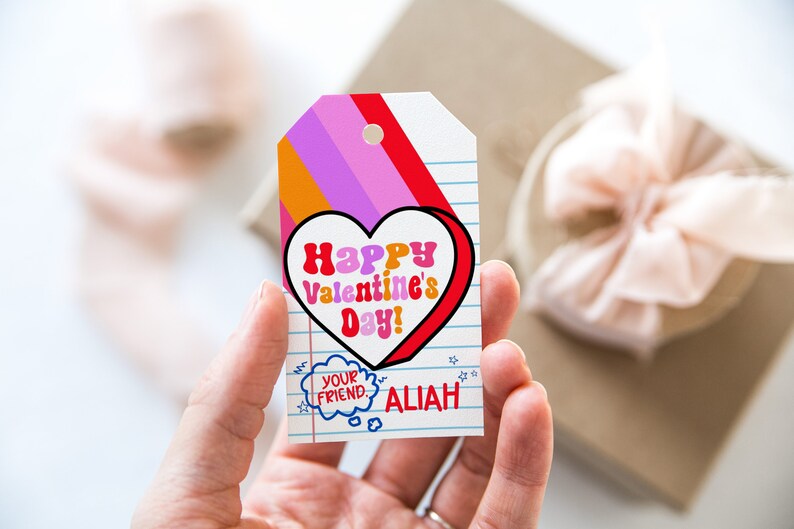 Happy
Valentine's
Day!
YOUR
FRIEND,
ALIAH